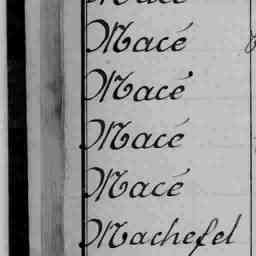 Macé
Macé
Macé
Macé
Machefel